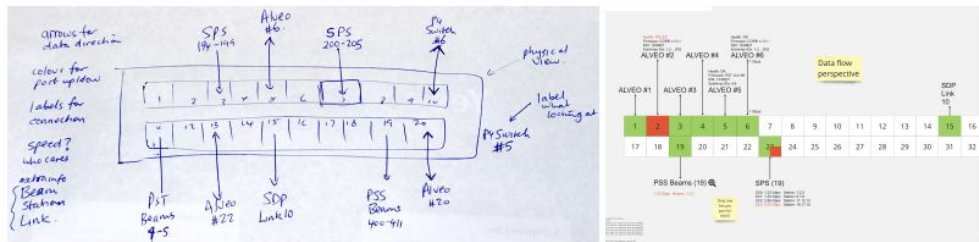 arrows for
data direction
colour for
port up/down
labels for
connection
speed?
who cares
extra info
Beam
Station
Link.
SPS
194-199
Alveo
#6
SPS
200-205
P4
Switch
#6
physical
view.
label
what
looking at
P4 Switch
#5
1 2 3 4 5 6 7 8 9 10
11 12 13 14 15 16 17 18 19 20
PST
Beams
4-5
Alveo
#22
SDP
Link 10
PSS
Beams
400-411
Alveo
#20
ALVEO #2
ALVEO #4
ALVEO #6
Data flow
perspective
ALVEO #1
ALVEO #3
ALVEO #5
SDP
Link
10
1 2 3 4 5 6 7 8 9 10 11 12 13 14 15 16
17 18 19 20 21 22 23 24 25 26 27 28 29 30 31 32
PSS Beams (19)
SPS (19)